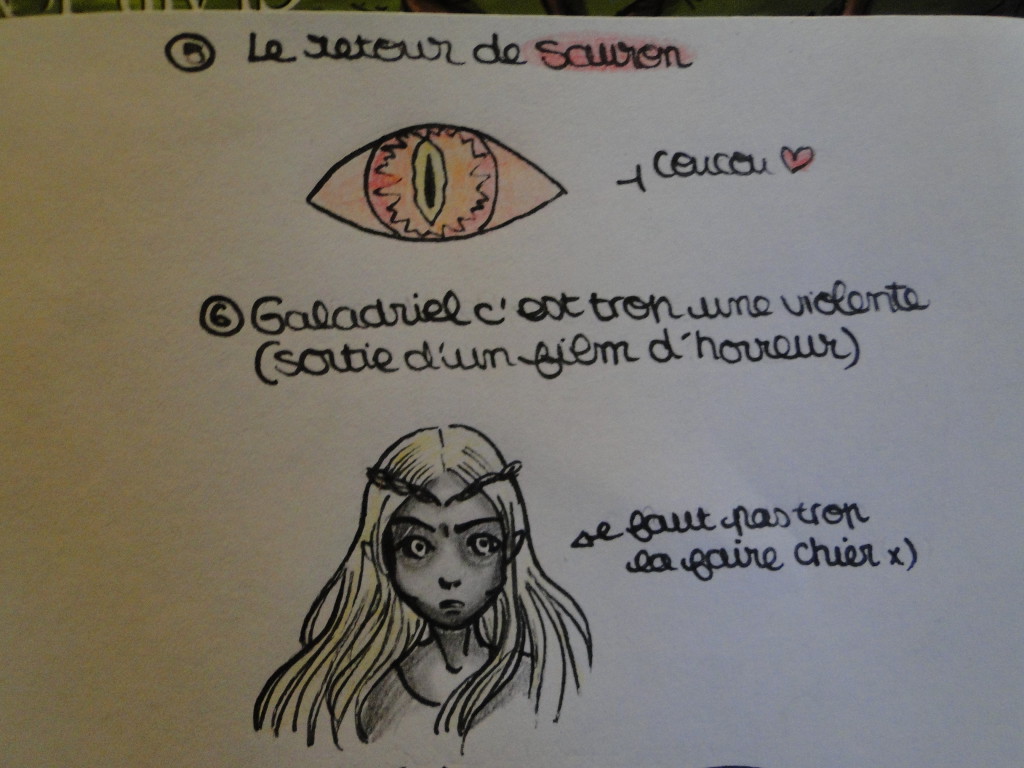 ⑤ Le retour de Sauron
coucou ♥
⑥ Galadriel c'est trop une violente
(sortie d'un film d'horreur)
faut pas trop
la faire chier x)